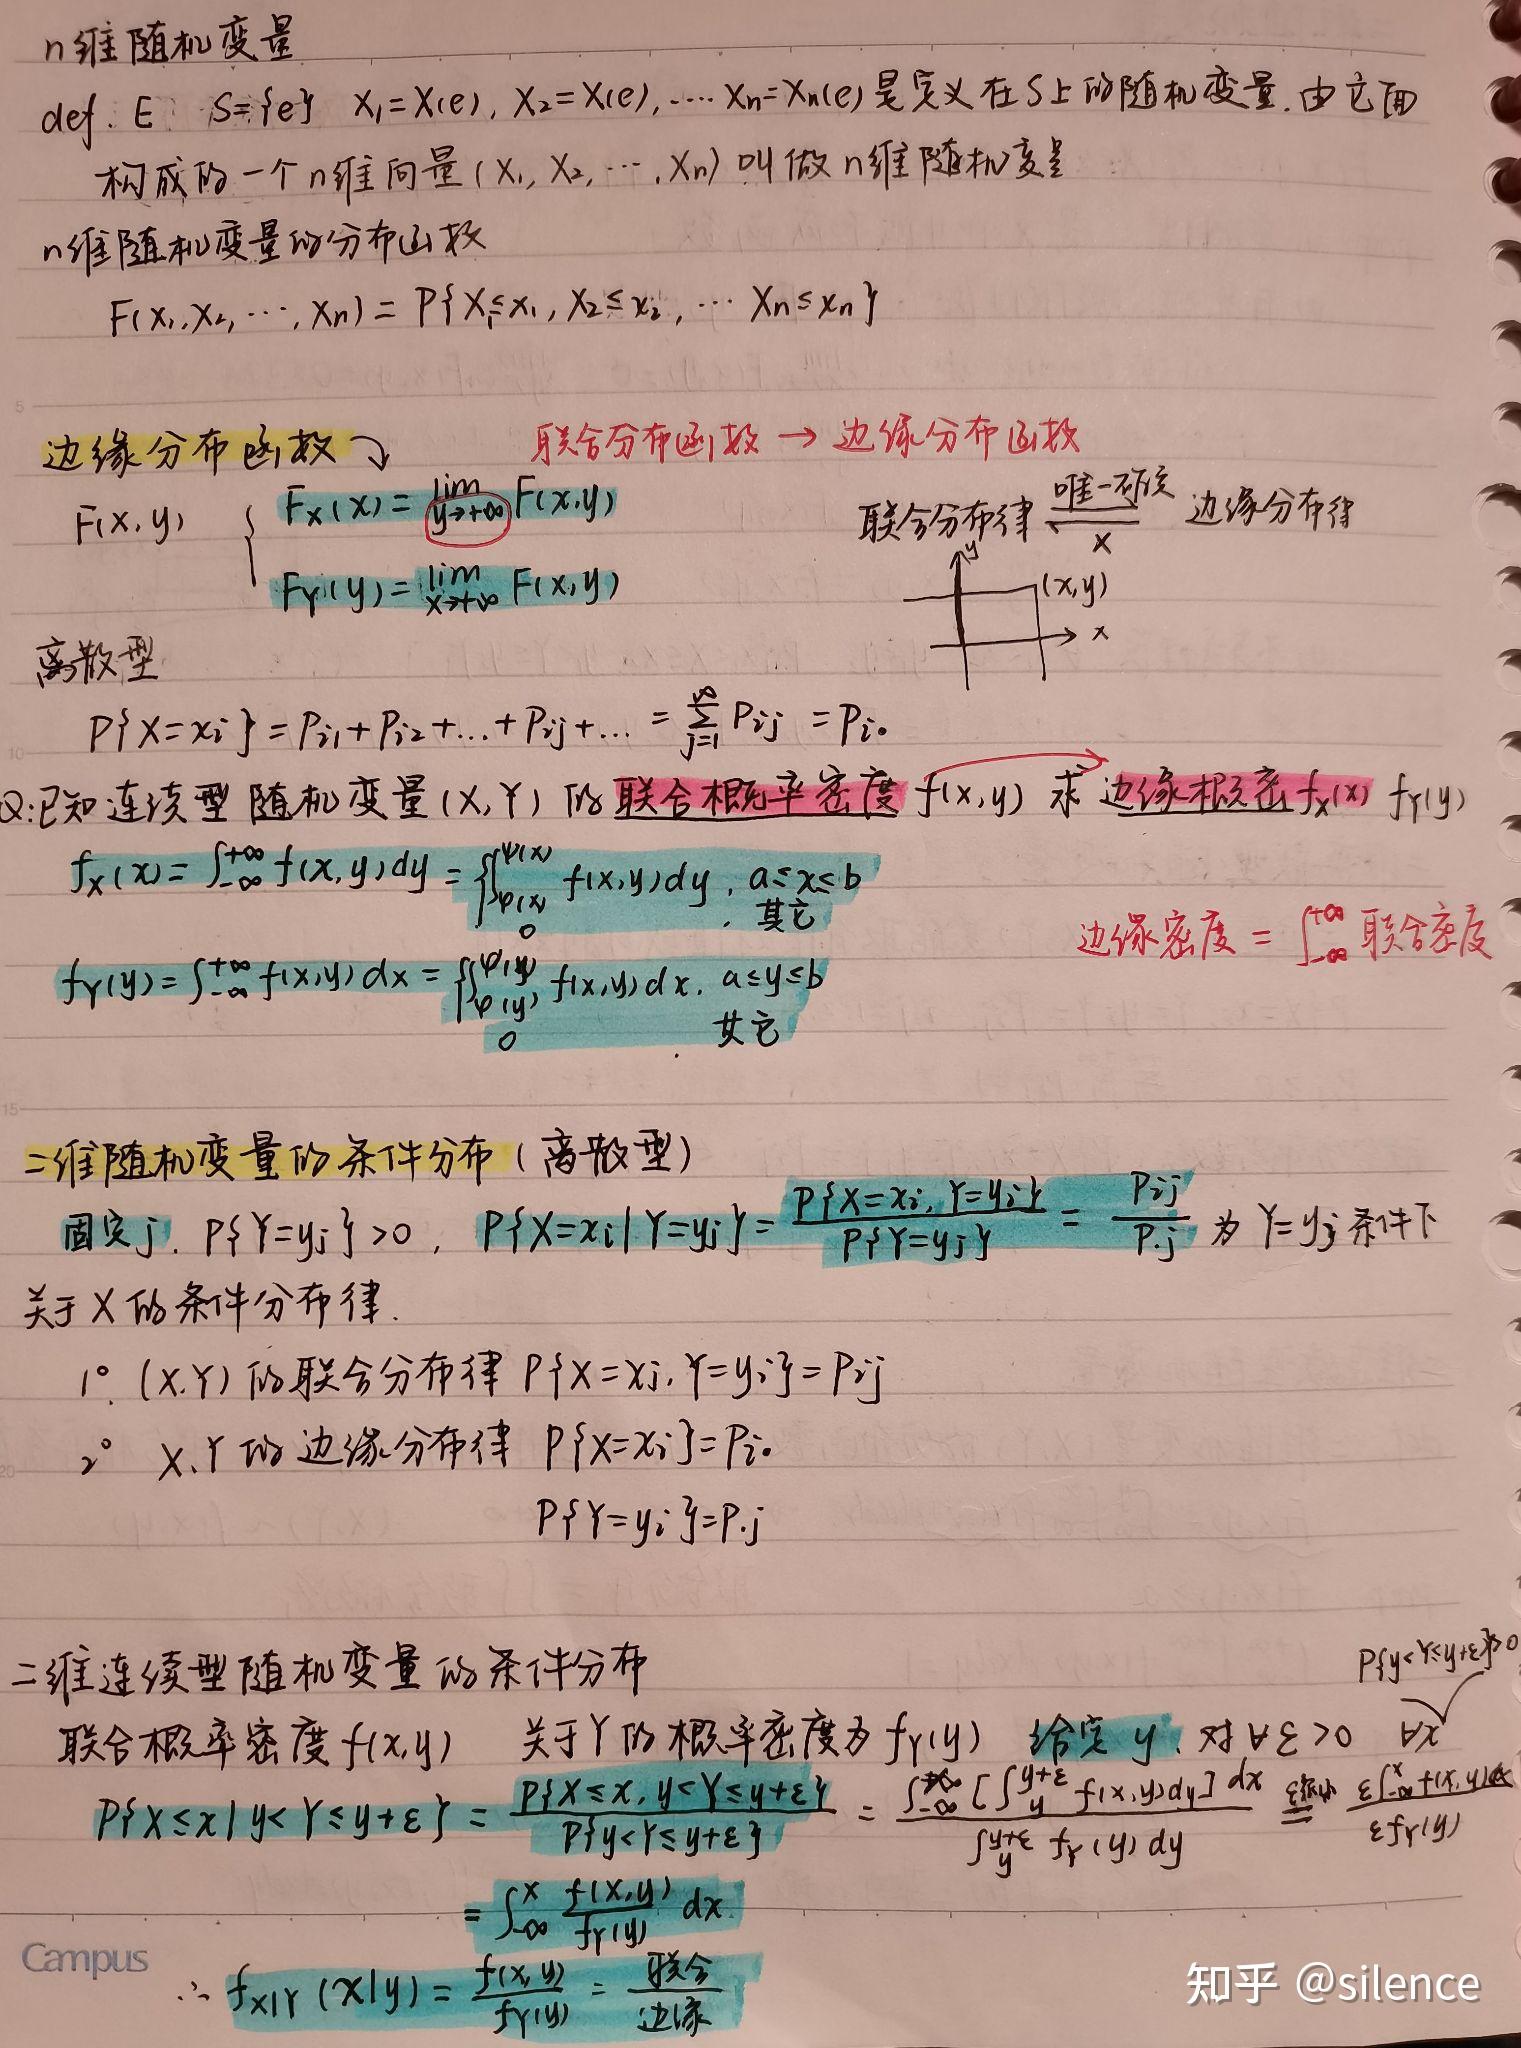 n维随机变量
def. E S={e} X₁=X(e), X₂=X(e), ‥‥ Xn=Xn(e) 是定义在S上的随机变量.由它们
构成的一个n维向量(X₁, X₂, ⋯, Xn) 叫做n维随机变量
n维随机变量的分布函数
F(x₁, x₂, ⋯, xn) = P{X₁≤x₁, X₂≤x₂, ⋯ Xn≤xn}
5
边缘分布函数 ⤵ 联合分布函数 → 边缘分布函数
F(x, y) { Fx(x) = lim y→+∞ F(x,y)
Fʏ(y) = lim x→+∞ F(x,y)
联合分布律 唯一确定 边缘分布律
x
y
(x,y)
x
离散型
P{X=xi} = Pi1+Pi2+…+Pij+… = ∑ j=1 ∞ Pij = Pi·
10
Q:已知连续型随机变量(X,Y)的联合概率密度f(x,y) 求边缘概密 fx(x) fʏ(y)
fx(x) = ∫-∞ +∞ f(x,y)dy = { ∫φ(x) ψ(x) f(x,y)dy, a≤x≤b
0 , 其它
边缘密度 = ∫-∞ +∞ 联合密度
fʏ(y) = ∫-∞ +∞ f(x,y)dx = { ∫φ(y) ψ(y) f(x,y)dx, a≤y≤b
0 . 其它
15
二维随机变量的条件分布(离散型)
固定j. P{Y=yj}>0, P{X=xi|Y=yj} = P{X=xi, Y=yi} / P{Y=yj} = Pij / P.j 为Y=yj条件下
关于X的条件分布律.
1° (X.Y)的联合分布律 P{X=xj, Y=yi}=Pij
2° X.Y的边缘分布律 P{X=xi}=Pi·
20
P{Y=yi}=P.j
二维连续型随机变量的条件分布
P{y<Y≤y+ε}>0
联合概率密度f(x,y) 关于Y的概率密度为fʏ(y) 给定y. 对∀ε>0 ∀x
P{X≤x|y<Y≤y+ε} = P{X≤x, y<Y≤y+ε} / P{y<Y≤y+ε} = ∫-∞ [∫y y+ε f(x,y)dy]dx / ∫y y+ε fʏ(y)dy = ε∫-∞ x f(x,y)dx / εfʏ(y)
= ∫-∞ x f(x,y) / fʏ(y) dx
Campus
∴ fx|ʏ(x|y) = f(x,y) / fʏ(y) = 联合 / 边缘
知乎 @silence